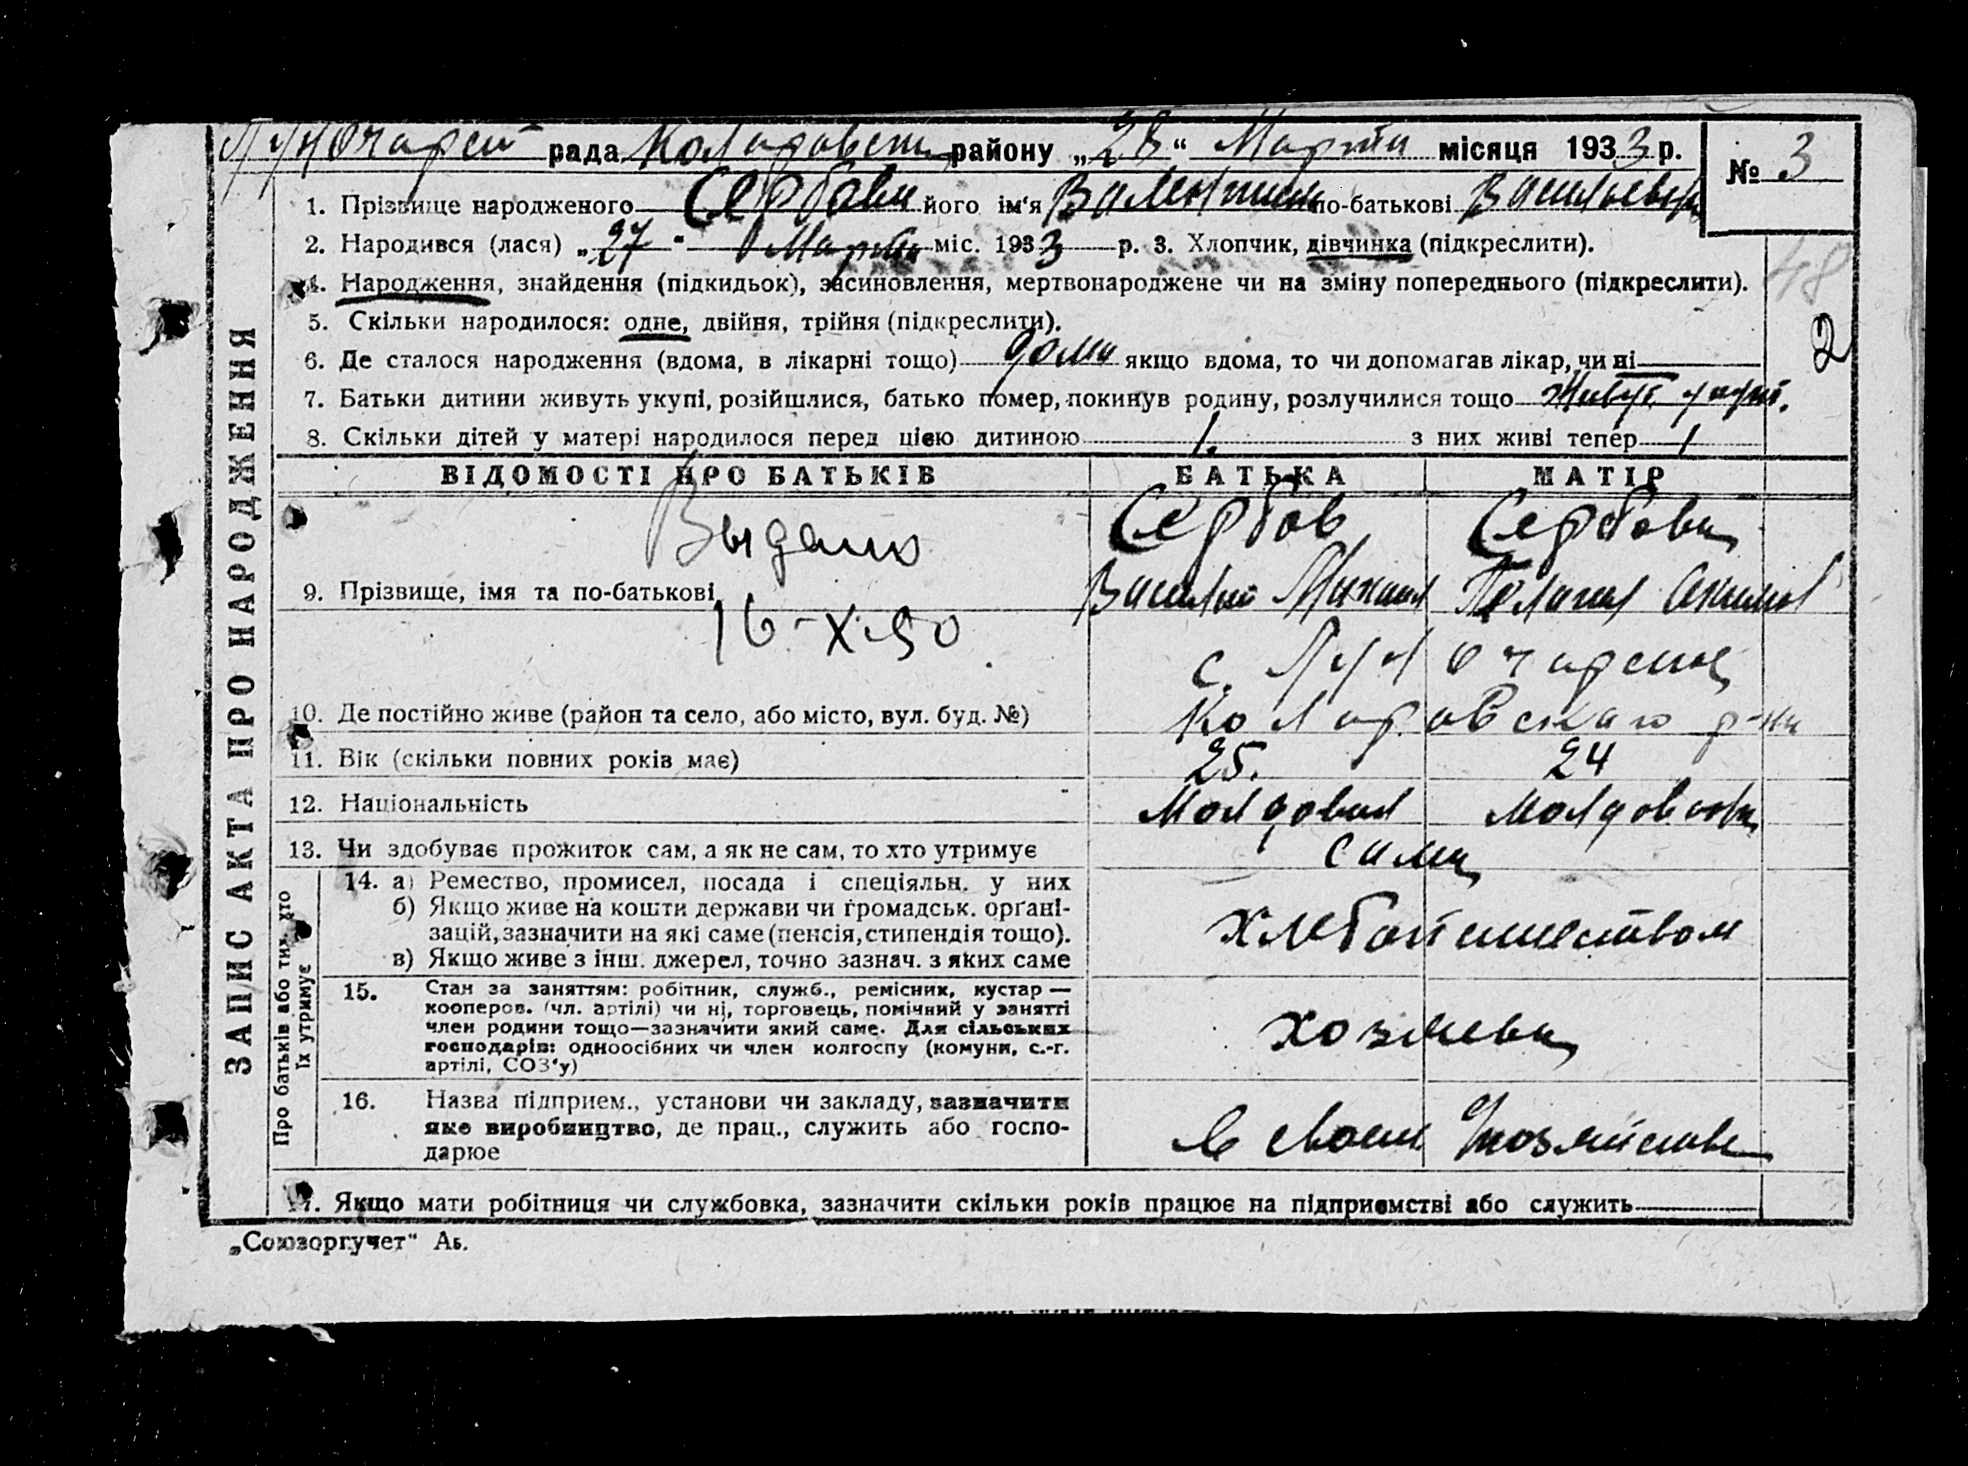 рада Коларовск району „28“ Марта місяця 1933 р. № 3
1. Прізвище народженого Сербова його ім‘я Валентина по-батькові Васильевна
2. Народився (лася) „27“ Марта міс. 1933 р. 3. Хлопчик, дівчинка (підкреслити).
48
4. Народження, знайдення (підкидьок), засиновлення, мертвонароджене чи на зміну попереднього (підкреслити).
5. Скільки народилося: одне, двійня, трійня (підкреслити).
2
6. Де сталося народження (вдома, в лікарні тощо) дома якщо вдома, то чи допомагав лікар, чи ні
7. Батьки дитини живуть укупі, розійшлися, батько помер, покинув родину, розлучилися тощо Живут
8. Скільки дітей у матері народилося перед цією дитиною 1. з них живі тепер 1
ЗАПИС АКТА ПРО НАРОДЖЕННЯ
ВІДОМОСТІ ПРО БАТЬКІВ БАТЬКА МАТІР
Выдано Сербов Сербова
9. Прізвище, імя та по-батькові Василий Михаил Пелагия
16-X-50 с. Луначарский
10. Де постійно живе (район та село, або місто, вул. буд. №) Коларовскаго р-на
11. Вік (скільки повних років має) 25. 24
12. Національність Молдован молдованка
13. Чи здобуває прожиток сам, а як не сам, то хто утримує сами
Про батьків або тих, хто їх утримує
14. а) Ремество, промисел, посада і спеціяльн. у них
б) Якщо живе на кошти держави чи громадськ. органі-
зацій, зазначити на які саме (пенсія, стипендія тощо). хлебопашеством
в) Якщо живе з інш. джерел, точно зазнач. з яких саме
15. Стан за заняттям: робітник, служб., ремісник, кустар —
кооперов. (чл. артілі) чи ні, торговець, помічний у занятті
член родини тощо—зазначити який саме. Для сільських
господарів: одноосібних чи член колгоспу (комуни, с.-г.
артілі, СОЗ‘у) хозяева
16. Назва підприєм., установи чи закладу, зазначити
яке виробництво, де прац., служить або госпо-
дарює в своем хозяйстве
17. Якщо мати робітниця чи службовка, зазначити скільки років працює на підприємстві або служить
„Союзоргучет“ Аь.